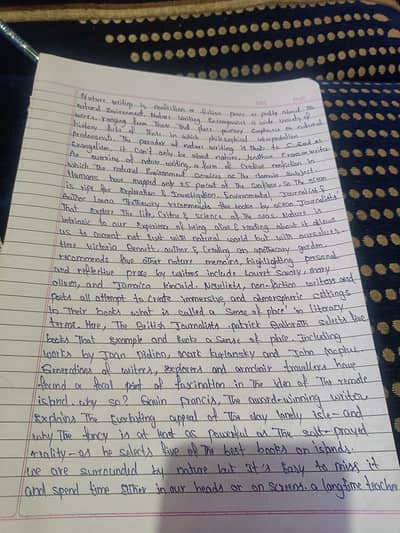 Nature writing is nonfiction or fiction prose or poetry about the
natural Environment. Nature writing Encompasses a wide variety of
works, ranging from those that place primary Emphasis on natural
history to those in which philosophical interpretation
predominate. The paradox of nature writing is that to succeed as
Evangelism, it can't only be about nature, Jonathan Franzen writes
An overview of nature writing, a form of creative nonfiction in
which the natural Environment serves as the dominant subject.
Humans have mapped only 25 percent of the seafloor. So the ocean
is ripe for Exploration & Investigation. Environmental Journalist &
author Laura Trethewey recommends five books by ocean Journalists
that Explore the life, Crime & science of the seas. Nature is
intrinsic to our Experience of being alive & reading about it allows
us to connect not just with natural world but with ourselves.
Here Victoria Bennett, author of
recommends five other nature memoirs, highlighting personal
and reflective prose by writers include Lauret Savoy, mary
oliver, and Jamaica Kincaid. Novelists, non-fiction writers and
poets all attempt to create immersive and atmospheric settings
in their books what is called a 'sense of place' in literary
terms. Here, the British Journalist patrick selects five
books that Example and Evoke a sense of place, including
works by Joan Didion, mark Kurlansky and John mcphee.
Generations of writers, explorers and armchair travellers have
found a focal point of fascination in the idea of the remote
island. why so? Gavin francis, the award-winning writer
Explains the Everlasting appeal of the lonely isle- and
why the fancy is at least as powerful as the salt-
reality- as he selects five of the best books on islands.
we are surrounded by nature but it's Easy to miss it
and spend time Either in our heads or on screens. a longtime teacher